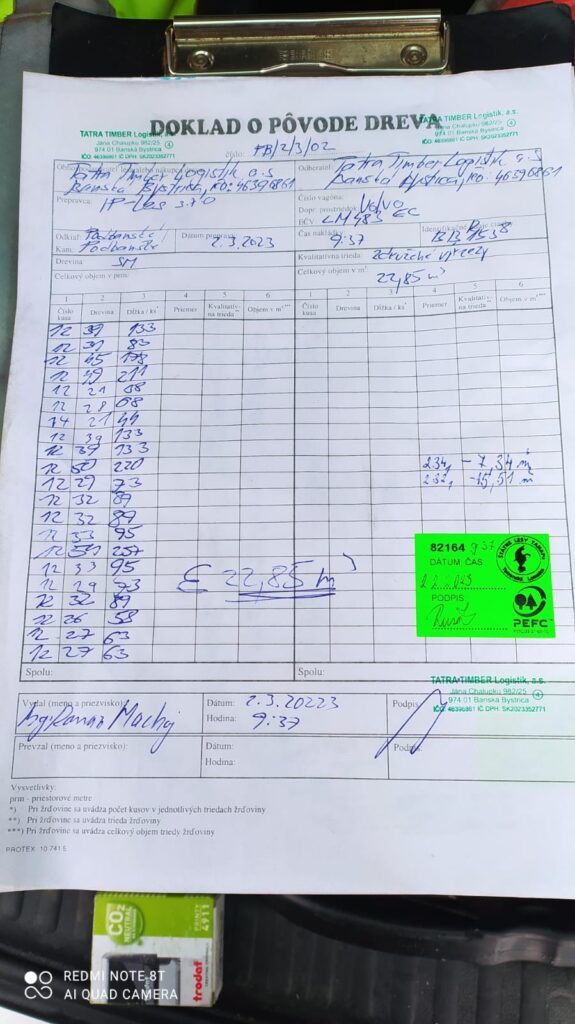 DOKLAD O PÔVODE DREVA
TATRA TIMBER Logistik, a.s.
Jána Chalupku 982/25
974 01 Banská Bystrica
IČO: 46396861 IČ DPH: SK2023352771
TATRA TIMBER Logistik, a.s.
Jána Chalupku 982/25
974 01 Banská Bystrica
IČO: 46396861 IČ DPH: SK2023352771
číslo: /2/3/02
Tatra Timber Logistik a.s
Banská Bystrica, IČO: 46396861
Odberateľ: Tatra Timber Logistik a.s
Banská Bystrica, IČO: 46396861
Prepravca:
Číslo vagóna:
Dopr. prostriedok: Volvo
EČV: LM483 EC
Odkiaľ: Podbanské
Kam: Podbanské
Dátum prepravy: 2.3.2023
Čas nakládky: 9:37
Drevina SM
Kvalitatívna trieda:
Celkový objem v prm:
Celkový objem v m³ 22,85 m³
1 2 3 4 5 6 1 2 3 4 5 6
Číslo kusa Drevina Dĺžka / ks* Priemer Kvalitatív. na trieda** Objem v m³*** Číslo kusa Drevina Dĺžka / ks* Priemer Kvalitatív. na trieda** Objem v m³***
12 39 133
12 31 83
12 45
12 49 211
12 21
12 28 68
14 21 44
12 39 133
12 39 133
12 50 220
12 29 73
12 32 89
12 32 89
12 33 95
12 257
12 33 95
12 29 73
12 32 89
12 26 58
12 27 63
12 27 63
- 7,34 m³
- 15,51 m³
Σ 22,85 m³
82164 9 37
DÁTUM ČAS
2.3.2023
PODPIS:
ŠTÁTNE LESY TANAPU
TATRANSKÁ LOMNICA
PEFC
Spolu: Spolu:
TATRA TIMBER Logistik, a.s.
Jána Chalupku 982/25
974 01 Banská Bystrica
IČO: 46396861 IČ DPH: SK2023352771
Vydal (meno a priezvisko):
Ing. Roman Machaj
Dátum: 2.3.20223
Hodina: 9:37
Podpis
Prevzal (meno a priezvisko):
Dátum:
Hodina:
Podpis
Vysvetlivky:
prm - priestorové metre
*) Pri žrďovine sa uvádza počet kusov v jednotlivých triedach žrďoviny
**) Pri žrďovine sa uvádza trieda žrďoviny
***) Pri žrďovine sa uvádza celkový objem triedy žrďoviny
PROTEX 10 741 E
CO2
NEUTRAL
PRINTY
4911
trodat
REDMI NOTE 8T
AI QUAD CAMERA